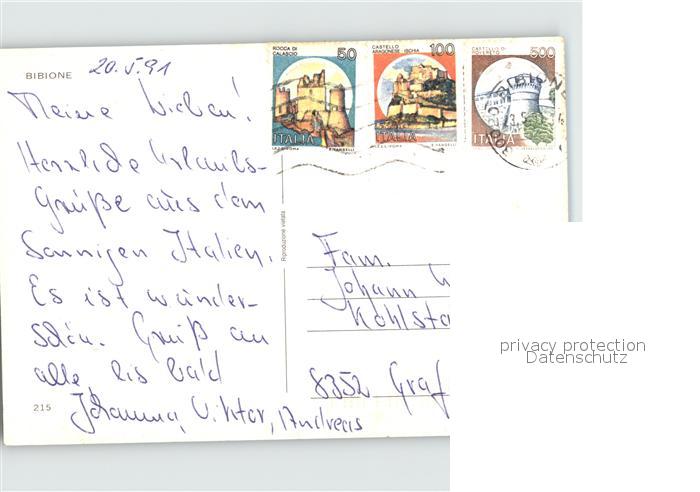 BIBIONE
20.5.91
Meine Lieben!
Herzliche Urlaubs-
Grüße aus dem
Sonnigen Italien.
Es ist wunder-
schön. Gruß an
alle, bis bald
Johanna, Viktor, Andreas
215
Riproduzione vietata
ROCCA DI
CALASCIO
50
ITALIA
I.P.Z.S. ROMA E.VANGELLI
CASTELLO
ARAGONESE · ISCHIA
100
ITALIA
I.P.Z.S. ROMA E.VANGELLI
CASTELLO DI
ROVERETO
500
ITALIA
Fam.
Johann
Kohlsta
8352 Graf
privacy protection
Datenschutz